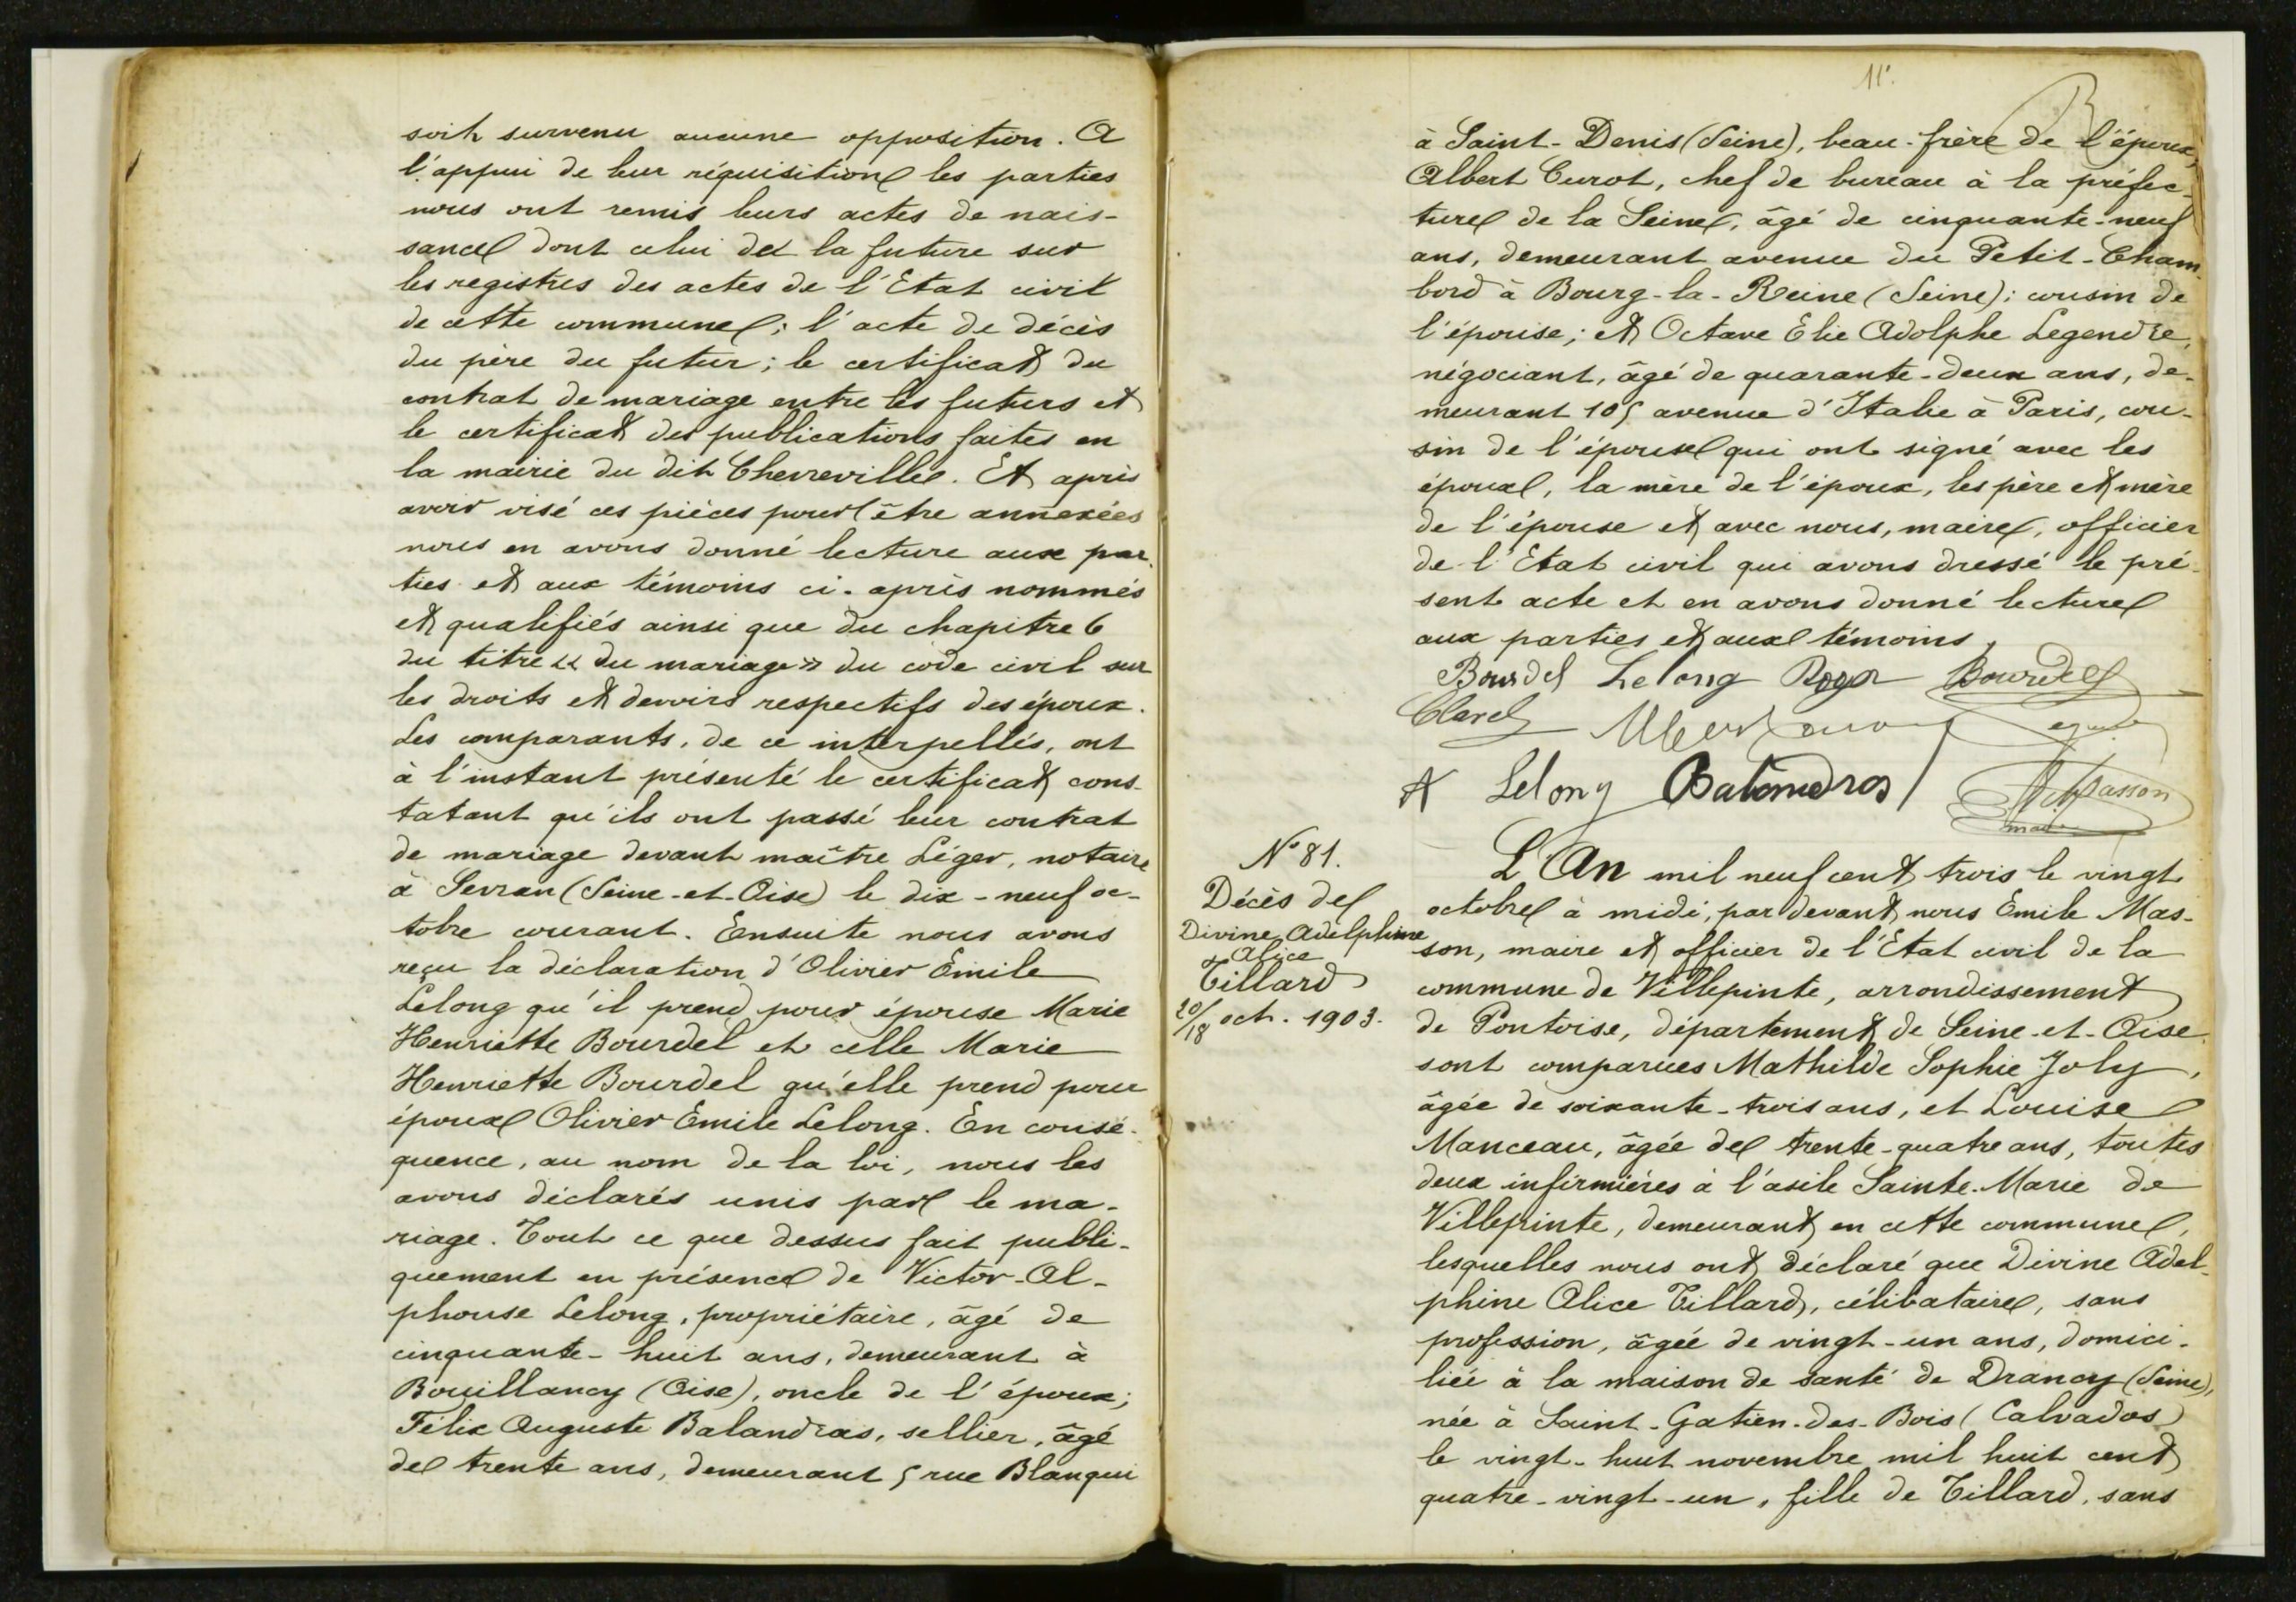 soit survenu aucune opposition. A
l'appui de leur réquisition les parties
nous ont remis leurs actes de nais-
sance dont celui de la future sur
les registres des actes de l'Etat civil
de cette commune; l'acte de décès
du père du futur; le certificat du
contrat de mariage entre les futurs et
le certificat des publications faites en
la mairie du dit Chevreville. Et après
avoir visé ces pièces pour être annexées
nous en avons donné lecture aux par-
ties et aux témoins ci-après nommés
et qualifiés ainsi que du chapitre 6
du titre « du mariage » du code civil sur
les droits et devoirs respectifs des époux.
Les comparants, de ce interpellés, ont
à l'instant présenté le certificat cons-
tatant qu'ils ont passé leur contrat
de mariage devant maître Léger, notaire
à Sevran (Seine-et-Oise) le dix-neuf oc-
tobre courant. Ensuite nous avons
reçu la déclaration d'Olivier Emile
Lelong qu'il prend pour épouse Marie
Henriette Bourdel et celle Marie
Henriette Bourdel qu'elle prend pour
époux Olivier Emile Lelong. En consé-
quence, au nom de la loi, nous les
avons déclarés unis par le ma-
riage. Tout ce que dessus fait publi-
quement en présence de Victor-Al-
phonse Lelong, propriétaire, âgé de
cinquante-huit ans, demeurant à
Bouillancy (Oise), oncle de l'époux;
Félix Auguste Balandras, sellier, âgé
de trente ans, demeurant 5 rue Blanqui
11
à Saint-Denis (Seine), beau-frère de l'époux,
Albert Curot, chef de bureau à la préfec-
ture de la Seine, âgé de cinquante-neuf
ans, demeurant avenue du Petit-Cham-
bord à Bourg-la-Reine (Seine); cousin de
l'épouse; et Octave Elie Adolphe Legendre,
négociant, âgé de quarante-deux ans, de-
meurant 105 avenue d'Italie à Paris, cou-
sin de l'épouse qui ont signé avec les
époux, la mère de l'époux, les père et mère
de l'épouse et avec nous, maire, officier
de l'Etat civil qui avons dressé le pré-
sent acte et en avons donné lecture
aux parties et aux témoins.
Bourdel Lelong Bourdel
A Lelong Balandras Masson
N° 81.
Décès de
Divine Adelphine
Alice
Tillard
20/18 oct. 1903.
L'An mil neuf cent trois le vingt
octobre à midi, par devant nous Emile Mas-
son, maire et officier de l'Etat civil de la
commune de Villepinte, arrondissement
de Pontoise, département de Seine-et-Oise
sont comparues Mathilde Sophie Joly,
âgée de soixante-trois ans, et Louise
Manceau, âgée de trente-quatre ans, toutes
deux infirmières à l'asile Sainte-Marie de
Villepinte, demeurant en cette commune,
lesquelles nous ont déclaré que Divine Adel-
phine Alice Tillard, célibataire, sans
profession, âgée de vingt-un ans, domici-
liée à la maison de santé de Drancy (Seine),
née à Saint-Gatien-des-Bois (Calvados)
le vingt-huit novembre mil huit cent
quatre-vingt-un, fille de Tillard, sans